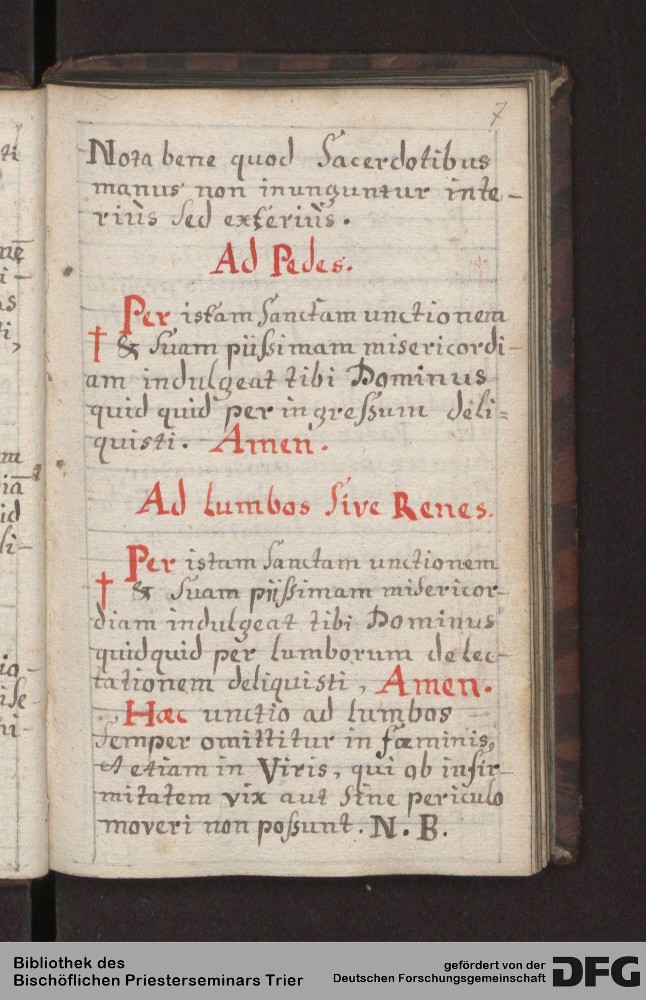 7
ti
Nota bene quod Sacerdotibus
manus non inunguntur inte-
riùs sed exterius.
Ad Pedes.
Per istam Sanctam unctionem
† & Suam piißimam misericordi-
am indulgeat tibi Dominus
quid quid per ingreßum deli=
quisti. Amen.
Ad lumbos Sive Renes.
Per istam Sanctam unctionem
† & Suam piißimam misericor-
diam indulgeat tibi Dominus
quidquid per lumborum delec-
tationem deliquisti, Amen.
Hæc unctio ad lumbos
Semper omittitur in fœminis,
et etiam in Viris, qui ob infir-
mitatem vix aut Sine periculo
moveri non poßunt. N. B.
Bibliothek des
Bischöflichen Priesterseminars Trier
gefördert von der
Deutschen Forschungsgemeinschaft
DFG